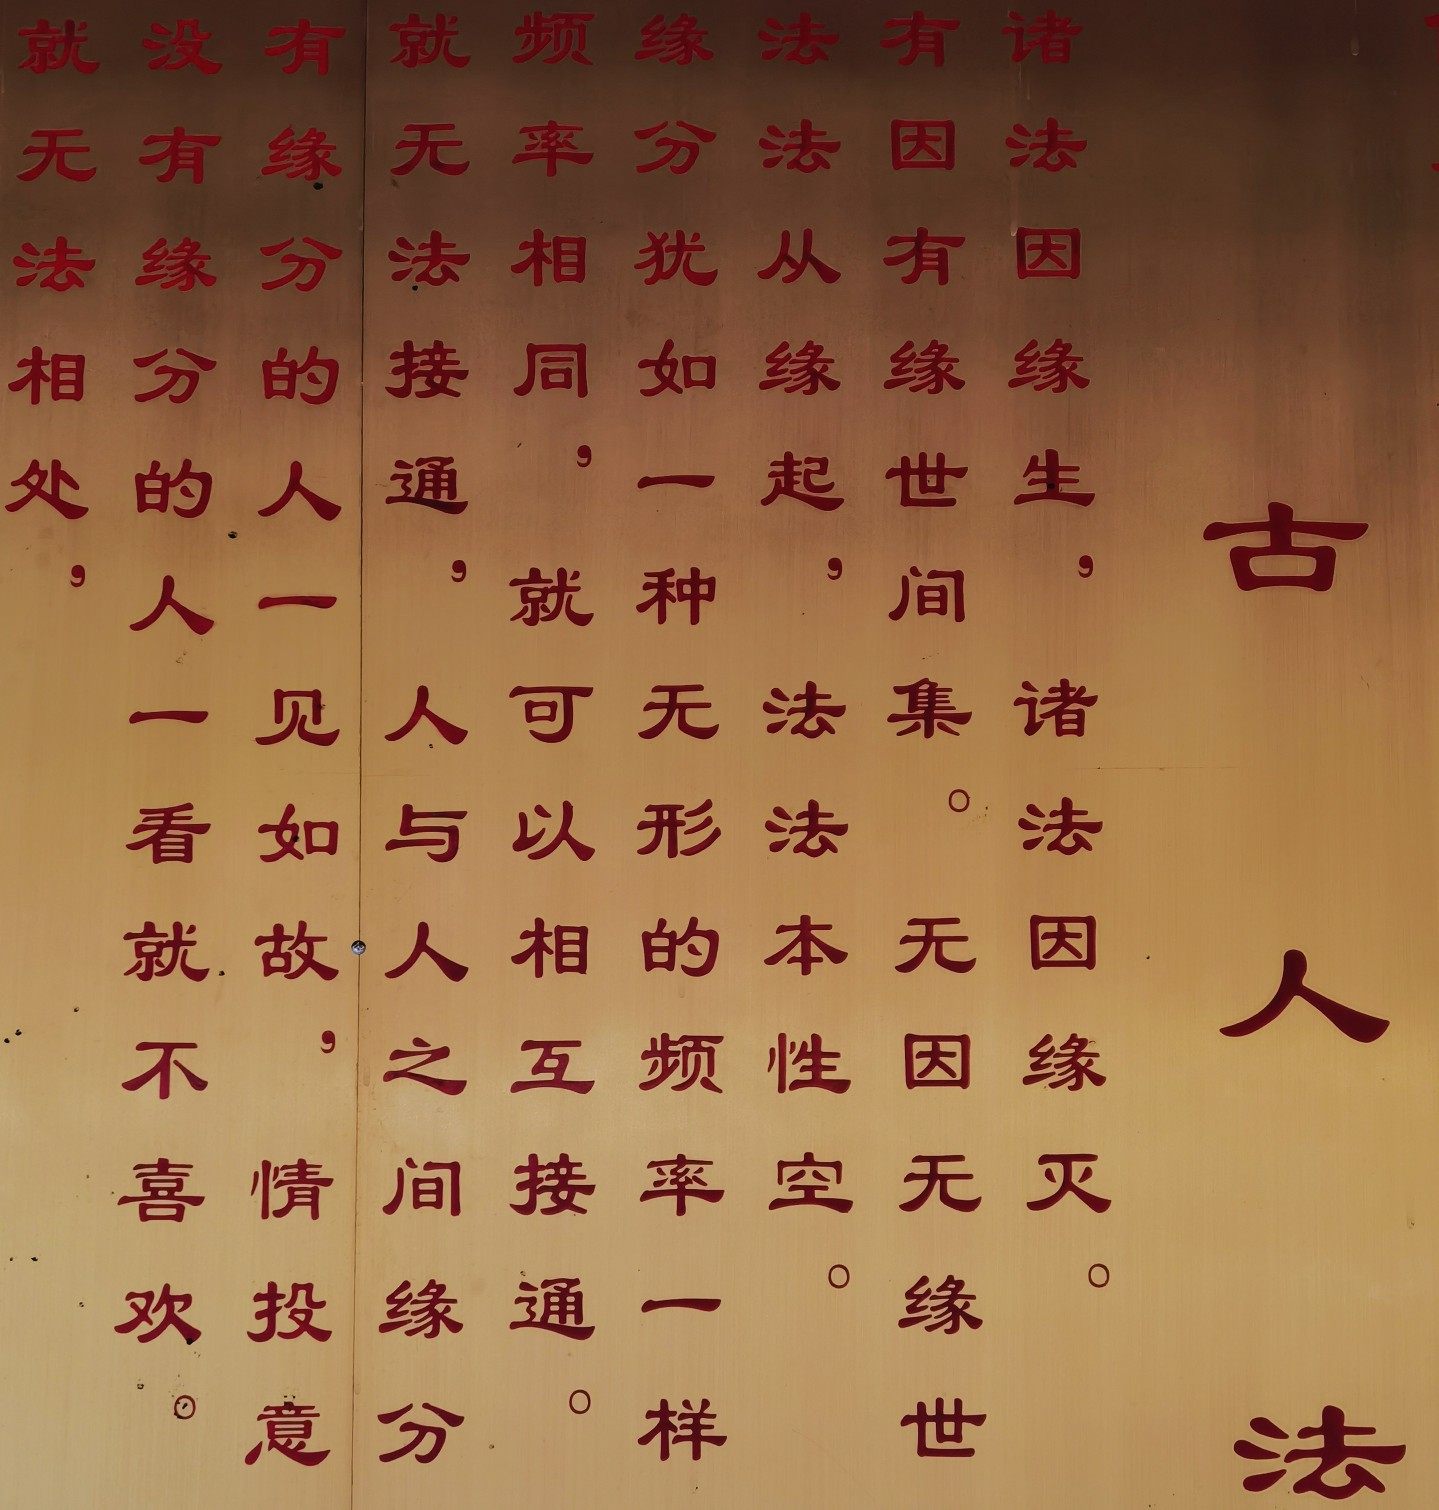 古人法
诸法因缘生，诸法因缘灭。
有因有缘世间集。无因无缘世
法法从缘起，法法本性空。
缘分犹如一种无形的频率一样
频率相同，就可以相互接通。
就无法接通，人与人之间缘分
有缘分的人一见如故，情投意
没有缘分的人一看就不喜欢。
就无法相处，